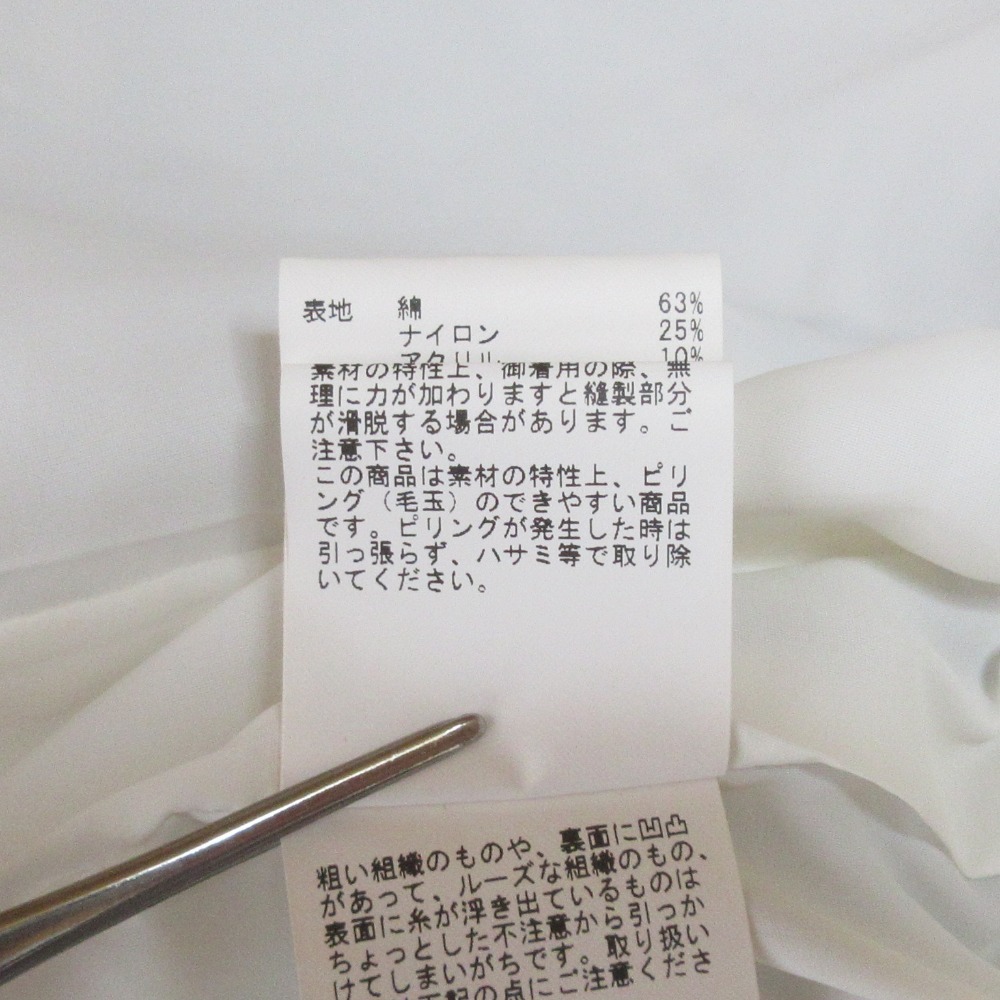 表地 綿 63%
ナイロン 25%
アクリル 10%
素材の特性上、御着用の際、無
理に力が加わりますと縫製部分
が滑脱する場合があります。ご
注意下さい。
この商品は素材の特性上、ピリ
ング（毛玉）のできやすい商品
です。ピリングが発生した時は
引っ張らず、ハサミ等で取り除
いてください。
粗い組織のものや、裏面に凹凸
があって、ルーズな組織のもの、
表面に糸が浮き出ているものは
ちょっとした不注意から引っか
けてしまいがちです。取り扱い
下記の点にご注意くださ